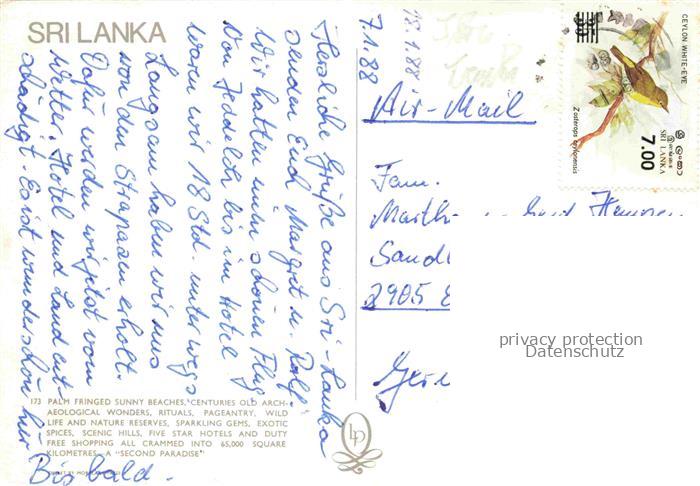 SRI LANKA
Herzliche Grüße aus Sri-Lanka
senden Euch Margret u. Ralf.
Wir hatten einen schönen Flug.
Von Jeddeloh bis im Hotel
waren wir 18 Std. unterwegs
Langsam haben wir uns
von den Strapazen erholt.
Dafür werden wir jetzt vom
Wetter, Hotel und Land ent-
schädigt. Es ist wunderschön hier
Bis bald.
173 PALM FRINGED SUNNY BEACHES, CENTURIES OLD ARCH-
AEOLOGICAL WONDERS, RITUALS, PAGEANTRY, WILD
LIFE AND NATURE RESERVES, SPARKLING GEMS, EXOTIC
SPICES, SCENIC HILLS, FIVE STAR HOTELS AND DUTY
FREE SHOPPING ALL CRAMMED INTO 65,000 SQUARE
KILOMETRES. A "SECOND PARADISE"
7.1.88
18.1.88
Air-Mail
Fam.
Sand
2905
CEYLON WHITE-EYE
Zosterops ceylonensis
ශ්‍රී ලංකා
இலங்கை
SRI LANKA
7.00
privacy protection
Datenschutz